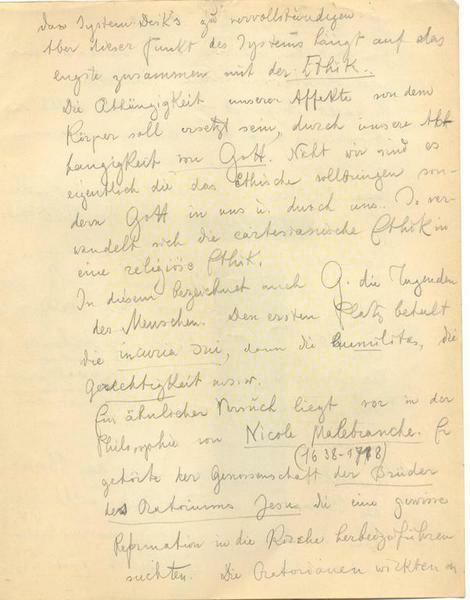 das System Desk's zu vervollständigen.
Aber dieser Punkt des Systems hängt auf das
engste zusammen mit der Ethik.
Die Abhängigkeit unserer Affekte von dem
Körper soll ersetzt sein, durch unsere Ab-
hängigkeit von Gott. Nicht wir sind es
eigentlich die das Ethische vollbringen son-
dern Gott in uns u. durch uns. So ver-
wandelt sich die cartesianische Ethik in
eine religiöse Ethik.
In diesem bezeichnet auch G. die Tugenden
des Menschen. Den ersten Platz behält
die incuria sui, dann die humilitas, die
Gerechtigkeit u.s.w.
Ein ähnlicher Versuch liegt vor in der
Philosophie von Nicole Malebranche. Er
(1638-1718)
gehörte der Genossenschaft der Brüder
des Oratoriums Jesu die eine gewisse
Reformation in die Kirche herbeizuführen
suchten. Die Oratorianen wirkten